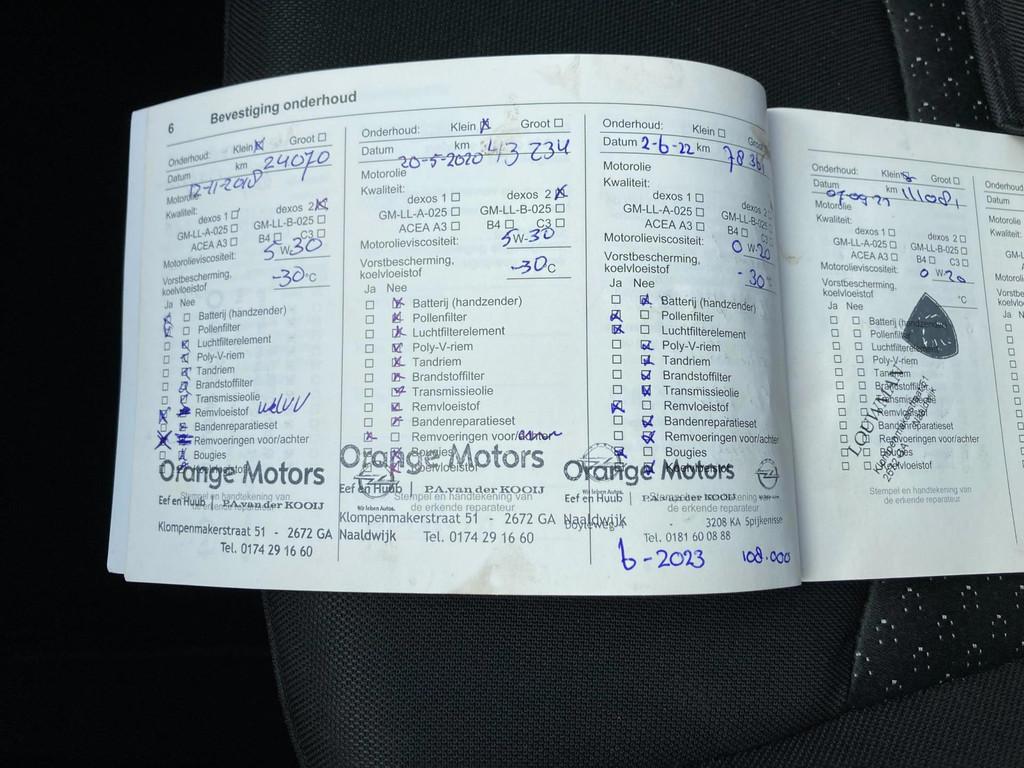 6 Bevestiging onderhoud
Onderhoud: Klein Groot
Datum 12-11-2018 km 24070
Motorolie
Kwaliteit:
dexos 1 dexos 2
GM-LL-A-025 GM-LL-B-025
ACEA A3 B4 C3
Motorolieviscositeit: 5W30
Vorstbescherming,
koelvloeistof -30°C
Ja Nee
Batterij (handzender)
Pollenfilter
Luchtfilterelement
Poly-V-riem
Tandriem
Brandstoffilter
Transmissieolie
Remvloeistof
Bandenreparatieset
Remvoeringen voor/achter
Bougies
Koelvloeistof
Orange Motors
Stempel en handtekening van
de erkende reparateur
Eef en Huub | P.A. van der KOOIJ
Klompenmakerstraat 51 - 2672 GA Naaldwijk
Tel. 0174 29 16 60
Onderhoud: Klein Groot
Datum 20-5-2020 km 43 234
Motorolie
Kwaliteit:
dexos 1 dexos 2
GM-LL-A-025 GM-LL-B-025
ACEA A3 B4 C3
Motorolieviscositeit: 5W-30
Vorstbescherming,
koelvloeistof -30°C
Ja Nee
Batterij (handzender)
Pollenfilter
Luchtfilterelement
Poly-V-riem
Tandriem
Brandstoffilter
Transmissieolie
Remvloeistof
Bandenreparatieset
Remvoeringen voor/achter
Bougies
Koelvloeistof
Orange Motors
Wir leben Autos.
Stempel en handtekening van
de erkende reparateur
Eef en Huub | P.A. van der KOOIJ
Klompenmakerstraat 51 - 2672 GA Naaldwijk
Tel. 0174 29 16 60
Onderhoud: Klein Groot
Datum 2-6-22 km
Motorolie
Kwaliteit:
dexos 1 dexos 2
GM-LL-A-025 GM-LL-B-025
ACEA A3 B4 C3
Motorolieviscositeit: 0W-20
Vorstbescherming,
koelvloeistof -30°C
Ja Nee
Batterij (handzender)
Pollenfilter
Luchtfilterelement
Poly-V-riem
Tandriem
Brandstoffilter
Transmissieolie
Remvloeistof
Bandenreparatieset
Remvoeringen voor/achter
Bougies
Koelvloeistof
Orange Motors
Wir leben Autos.
Stempel en handtekening van
de erkende reparateur
Eef en Huub | P.A. van der KOOIJ
3208 KA Spijkenisse
Tel. 0181 60 08 88
6-2023 108.000
Onderhoud: Klein Groot
Datum km
Motorolie
Kwaliteit:
dexos 1 dexos 2
GM-LL-A-025 GM-LL-B-025
ACEA A3 B4 C3
Motorolieviscositeit: 0W20
Vorstbescherming,
koelvloeistof °C
Ja Nee
Batterij (handzender)
Pollenfilter
Luchtfilterelement
Poly-V-riem
Tandriem
Brandstoffilter
Transmissieolie
Remvloeistof
Bandenreparatieset
Remvoeringen voor/achter
Bougies
Koelvloeistof
LOUWMAN
Stempel en handtekening van
de erkende reparateur